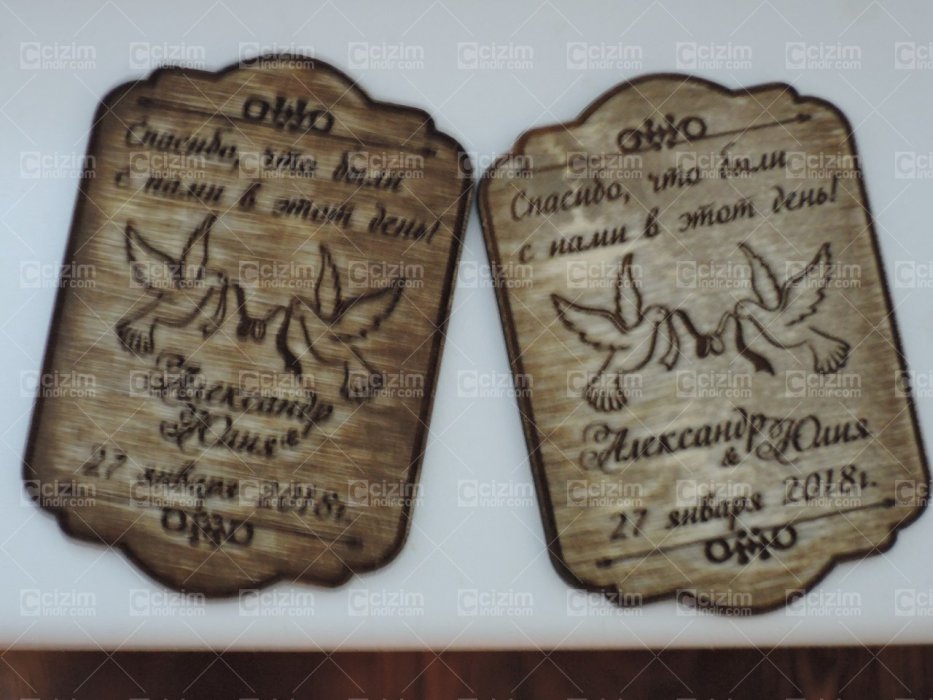 Спасибо, что были
с нами в этот день!
Александр
Юлия &
27 января 2018г.
Спасибо, что были
с нами в этот день!
Александр & Юлия
27 января 2018г.
cizim
indir.com